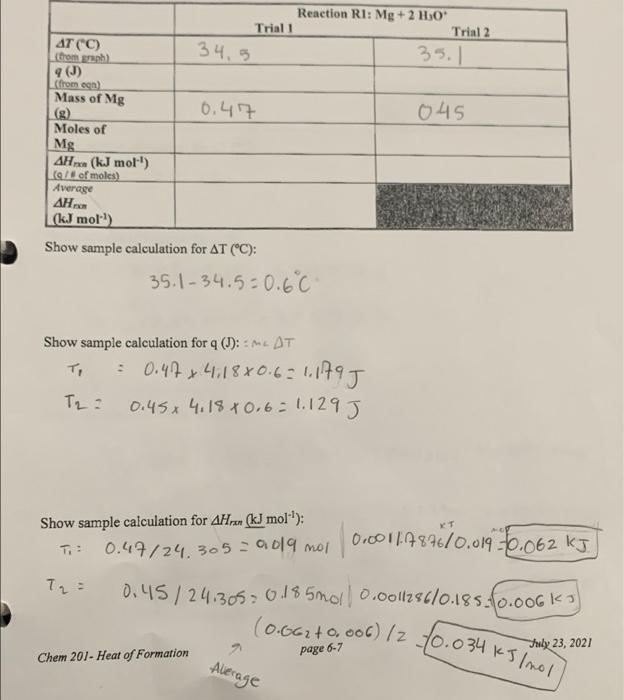 Reaction R1: Mg + 2 H₃O⁺
Trial 1 Trial 2
ΔT (°C)
(from graph) 34.5 35.1
q (J)
(from eqn)
Mass of Mg
(g) 0.47 045
Moles of
Mg
ΔHrxn (kJ mol⁻¹)
(q / # of moles)
Average
ΔHrxn
(kJ mol⁻¹)
Show sample calculation for ΔT (°C):
35.1-34.5=0.6°C
Show sample calculation for q (J): = mc ΔT
T₁ = 0.47 x 4.18 x 0.6 = 1.179 J
T₂ = 0.45 x 4.18 x 0.6 = 1.129 J
Show sample calculation for ΔHrxn (kJ mol⁻¹):
T₁: 0.47/24.305 = 0.019 mol | 0.0011.7876/0.019 = 0.062 kJ
T₂ = 0.45/24.305 = 0.185mol | 0.0011286/0.185 = 0.006 kJ
(0.062 + 0.006) /2 = 0.034 kJ/mol
Chem 201- Heat of Formation page 6-7 July 23, 2021
Average